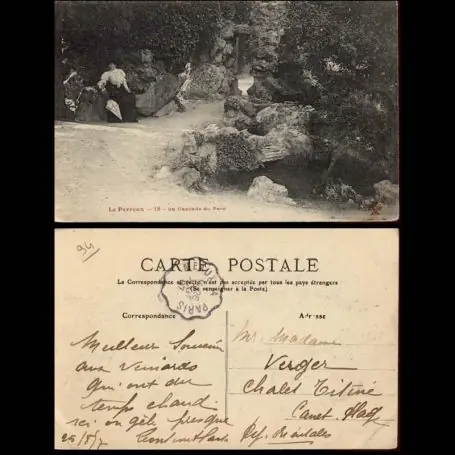 Le Perreux — 18 — La Cascade du Parc
94
CARTE POSTALE
La Correspondance au recto n'est pas acceptée par tous les pays étrangers
(Se renseigner à la Poste)
PARIS
Correspondance
Adresse
Meilleur Souvenir
aux
qui ont du
temps chaud
ici on gèle presque
Mr. Madame
Verger
Chalet Titine
Canet Plage
Pyr. Orientales